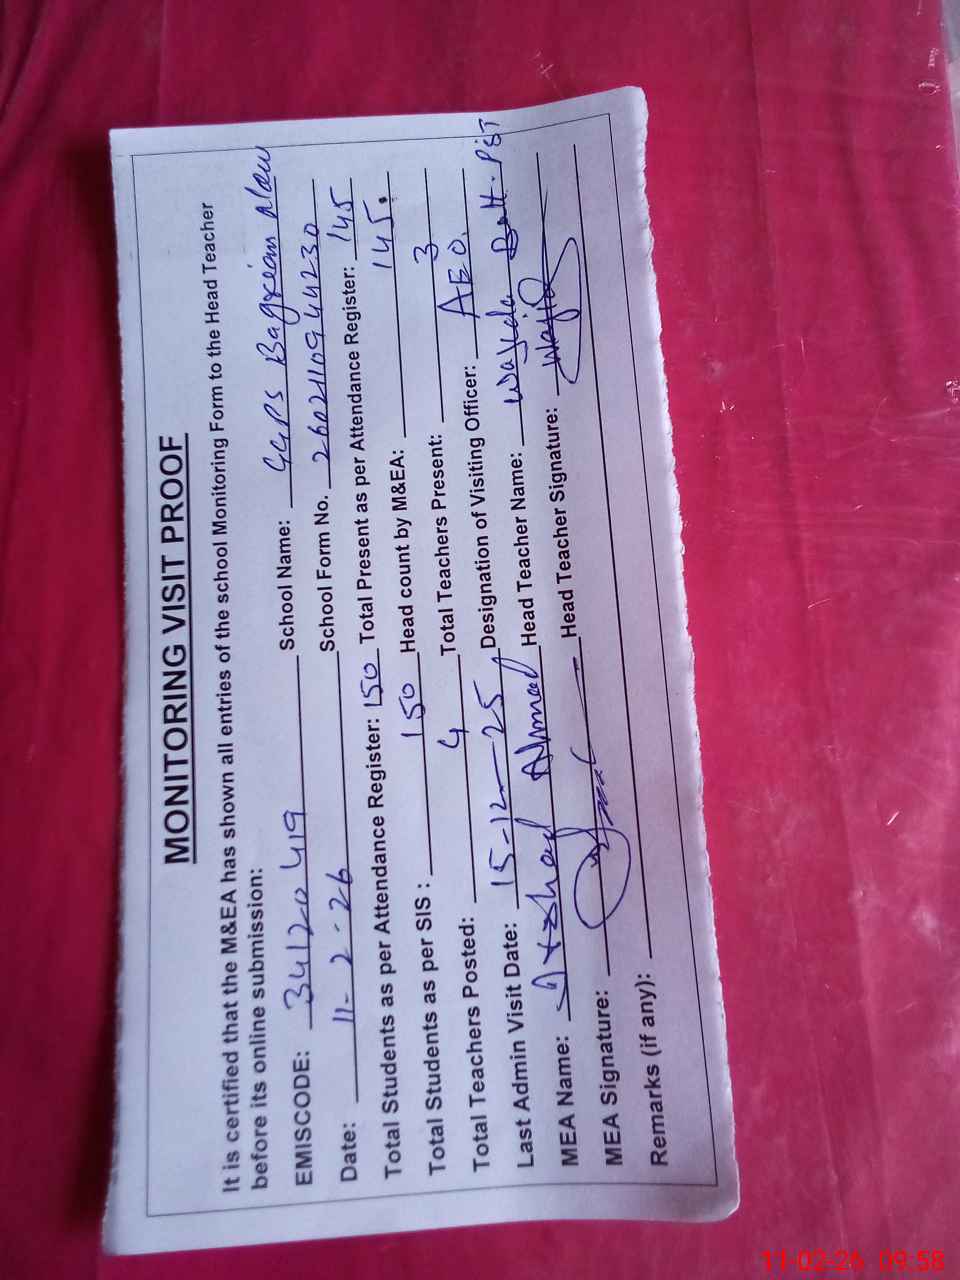 MONITORING VISIT PROOF
It is certified that the M&EA has shown all entries of the school Monitoring Form to the Head Teacher
before its online submission:
EMISCODE: 34120419 School Name: GGPS Bagrian
Date: 11-2-26 School Form No. 26021109444230
Total Students as per Attendance Register: 150 Total Present as per Attendance Register: 145
Total Students as per SIS : 150 Head count by M&EA: 145.
Total Teachers Posted: 4 Total Teachers Present: 3
Last Admin Visit Date: 15-12-25 Designation of Visiting Officer: AEO.
MEA Name: Ahmad Head Teacher Name: Wajeda Butt. PST
MEA Signature: Head Teacher Signature: Wajid
Remarks (if any):
11-02-26 09:58